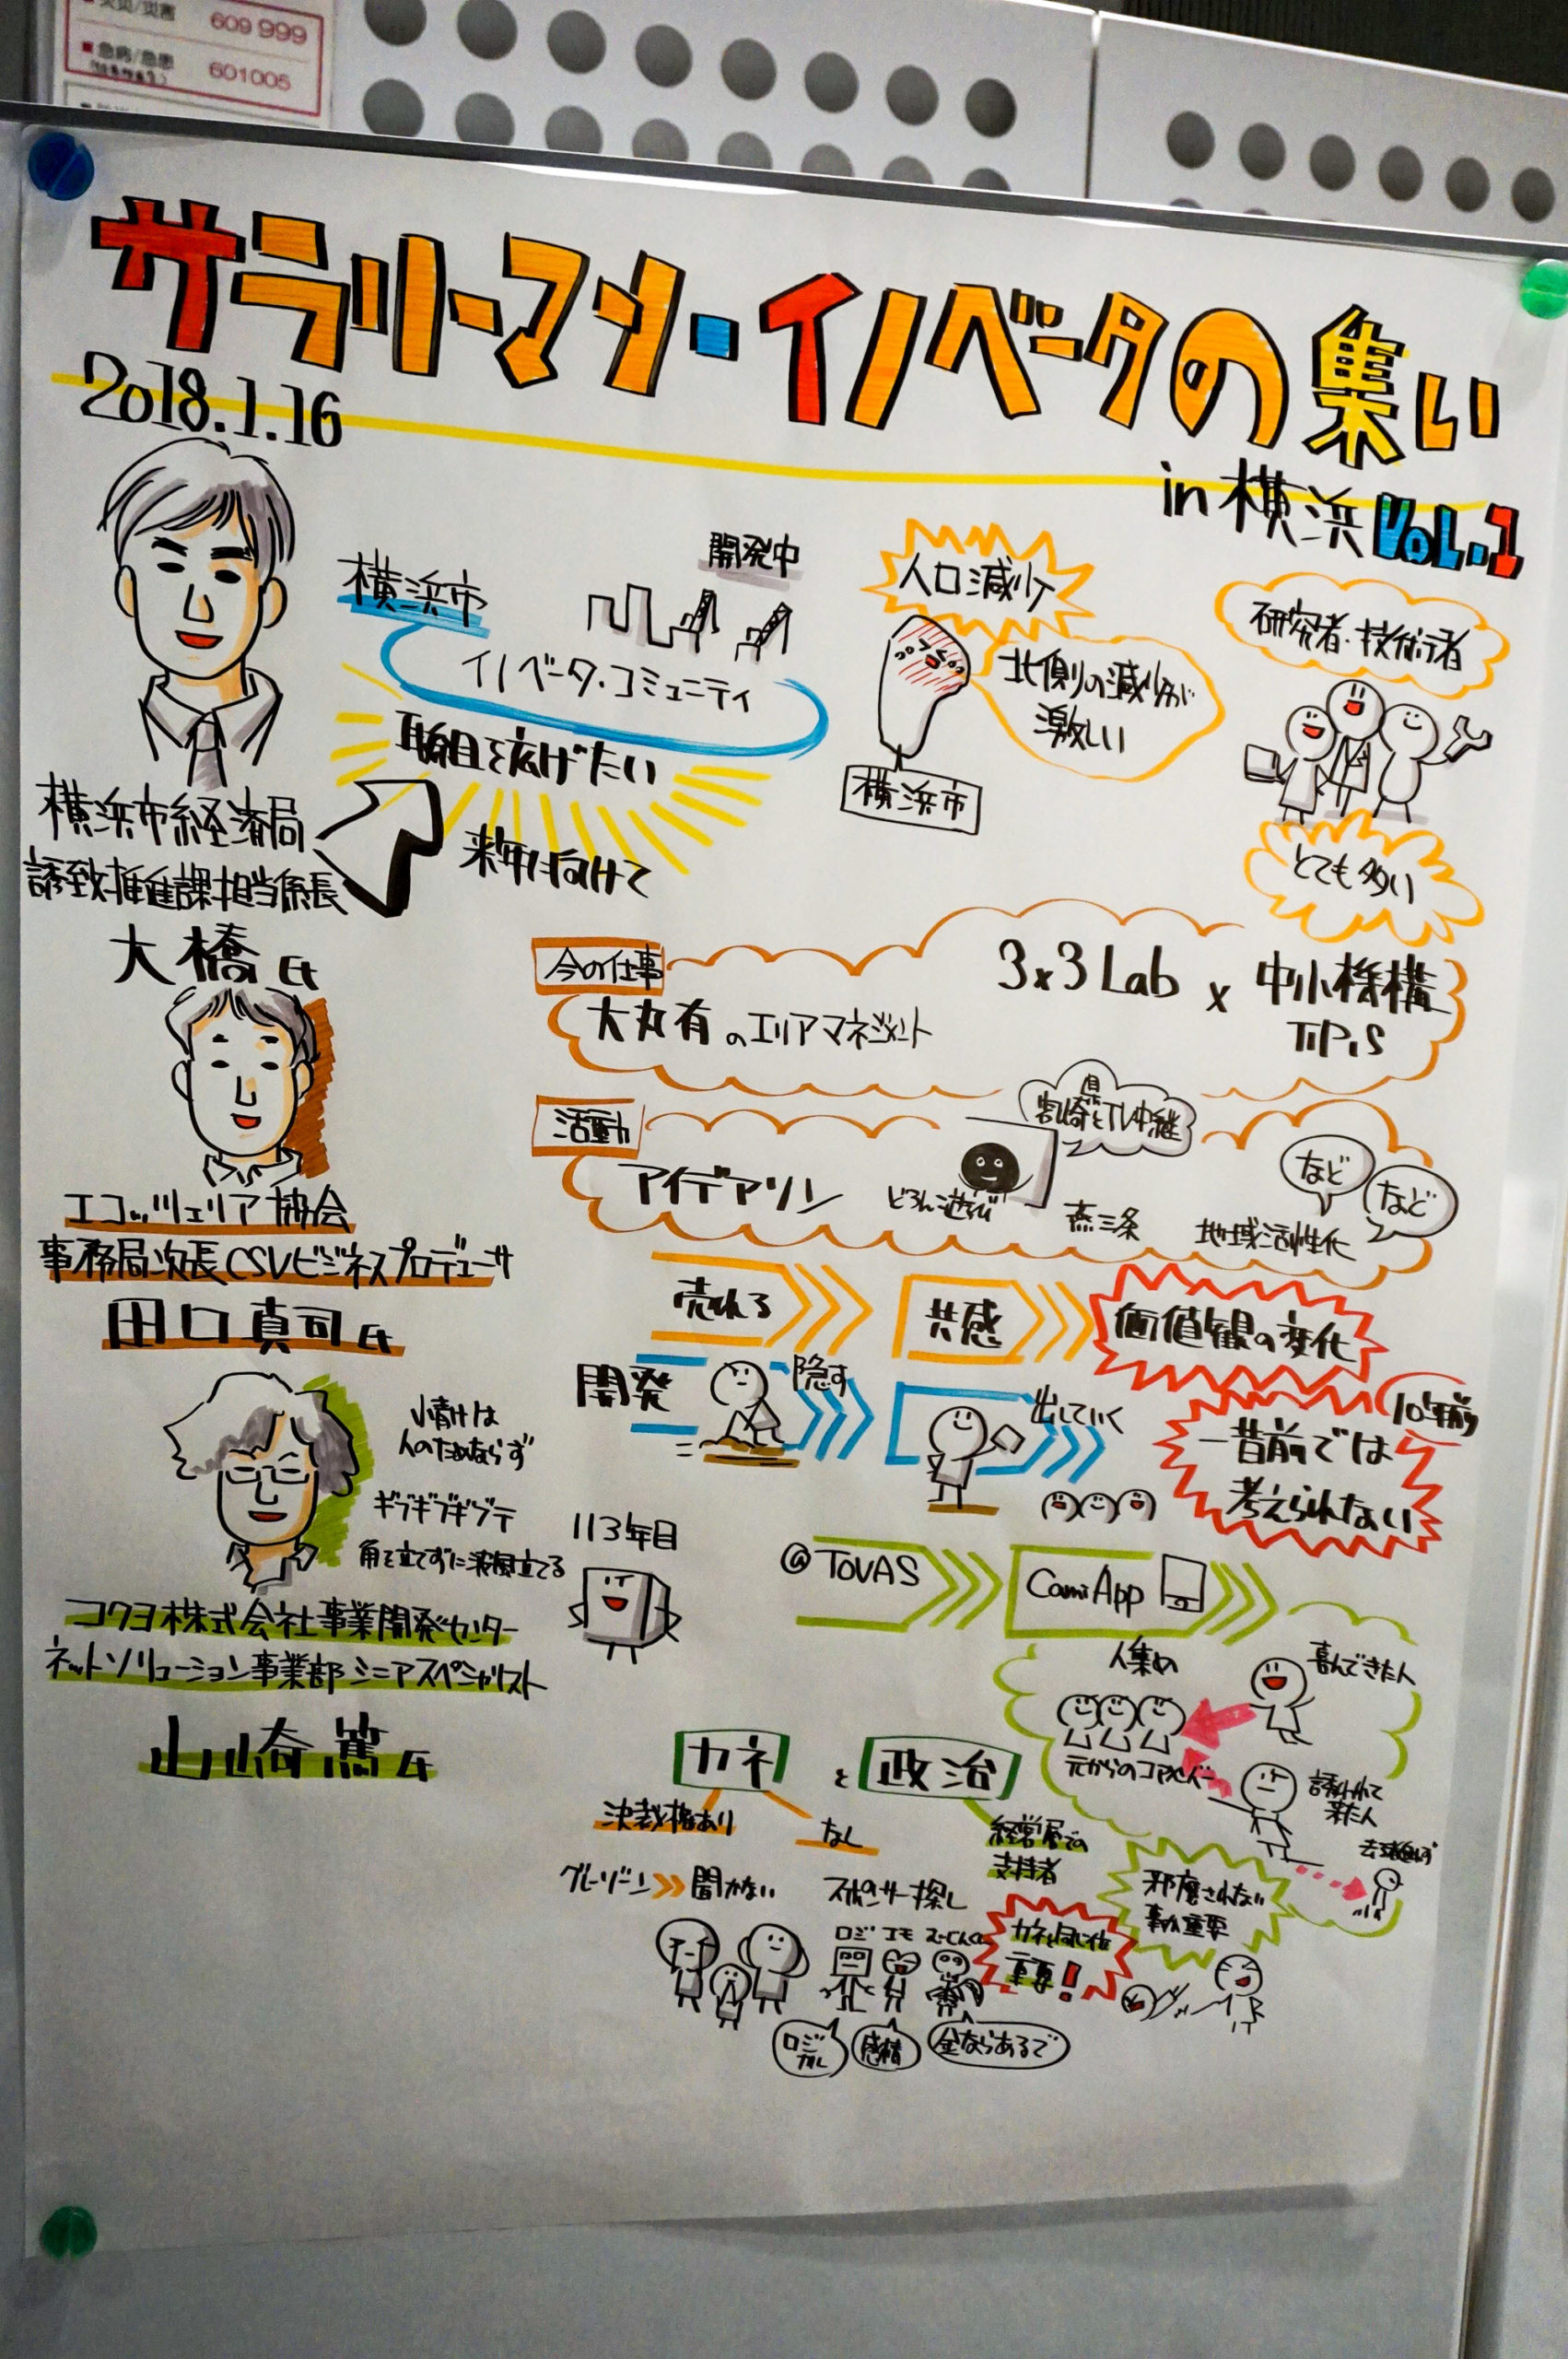 609 999
601005
サラリーマン・イノベータの集い
2018.1.16
in 横浜 VOL.1
横浜市
開発中
イノベータ・コミュニティ
人口減少
北側の減少が
激しい
横浜市
研究者・技術者
とても多い
横浜市経済局
誘致推進課担当係長
大橋氏
来年に向けて
今の仕事
大丸有のエリアマネジメント
3×3Lab × 中小機構
TIP*S
活動
アイデアソン
どろん遊び
とTV中継
燕三条
地域活性化
など
など
エコッツェリア協会
事務局次長CSVビジネスプロデューサ
田口真司氏
売れる
共感
価値観の変化
開発
隠す
出していく
10年前
一昔前では
考えられない
情けは
人のためならず
ギブギブギブテ
角を立てずに波風立てる
113年目
コクヨ株式会社事業開発センター
ネットソリューション事業部シニアスペシャリスト
山崎篤氏
@TOVAS
CamiApp
人集め
喜んできた人
元からのコアメンバー
誘われて
来た人
去る者追わず
カネと政治
決裁権あり
なし
経営層での
支持者
グレーゾーン
聞かない
スポンサー探し
ロジ エモ
カネと同じ位
重要!
邪魔されない
事が重要
ロジカル
感情
金ならあるで